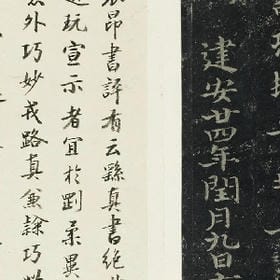 建安廿四年閏月九日
昂書評有云繇真書絶
玩宣示者宜於剛柔異
外巧妙戎路真兼隸巧